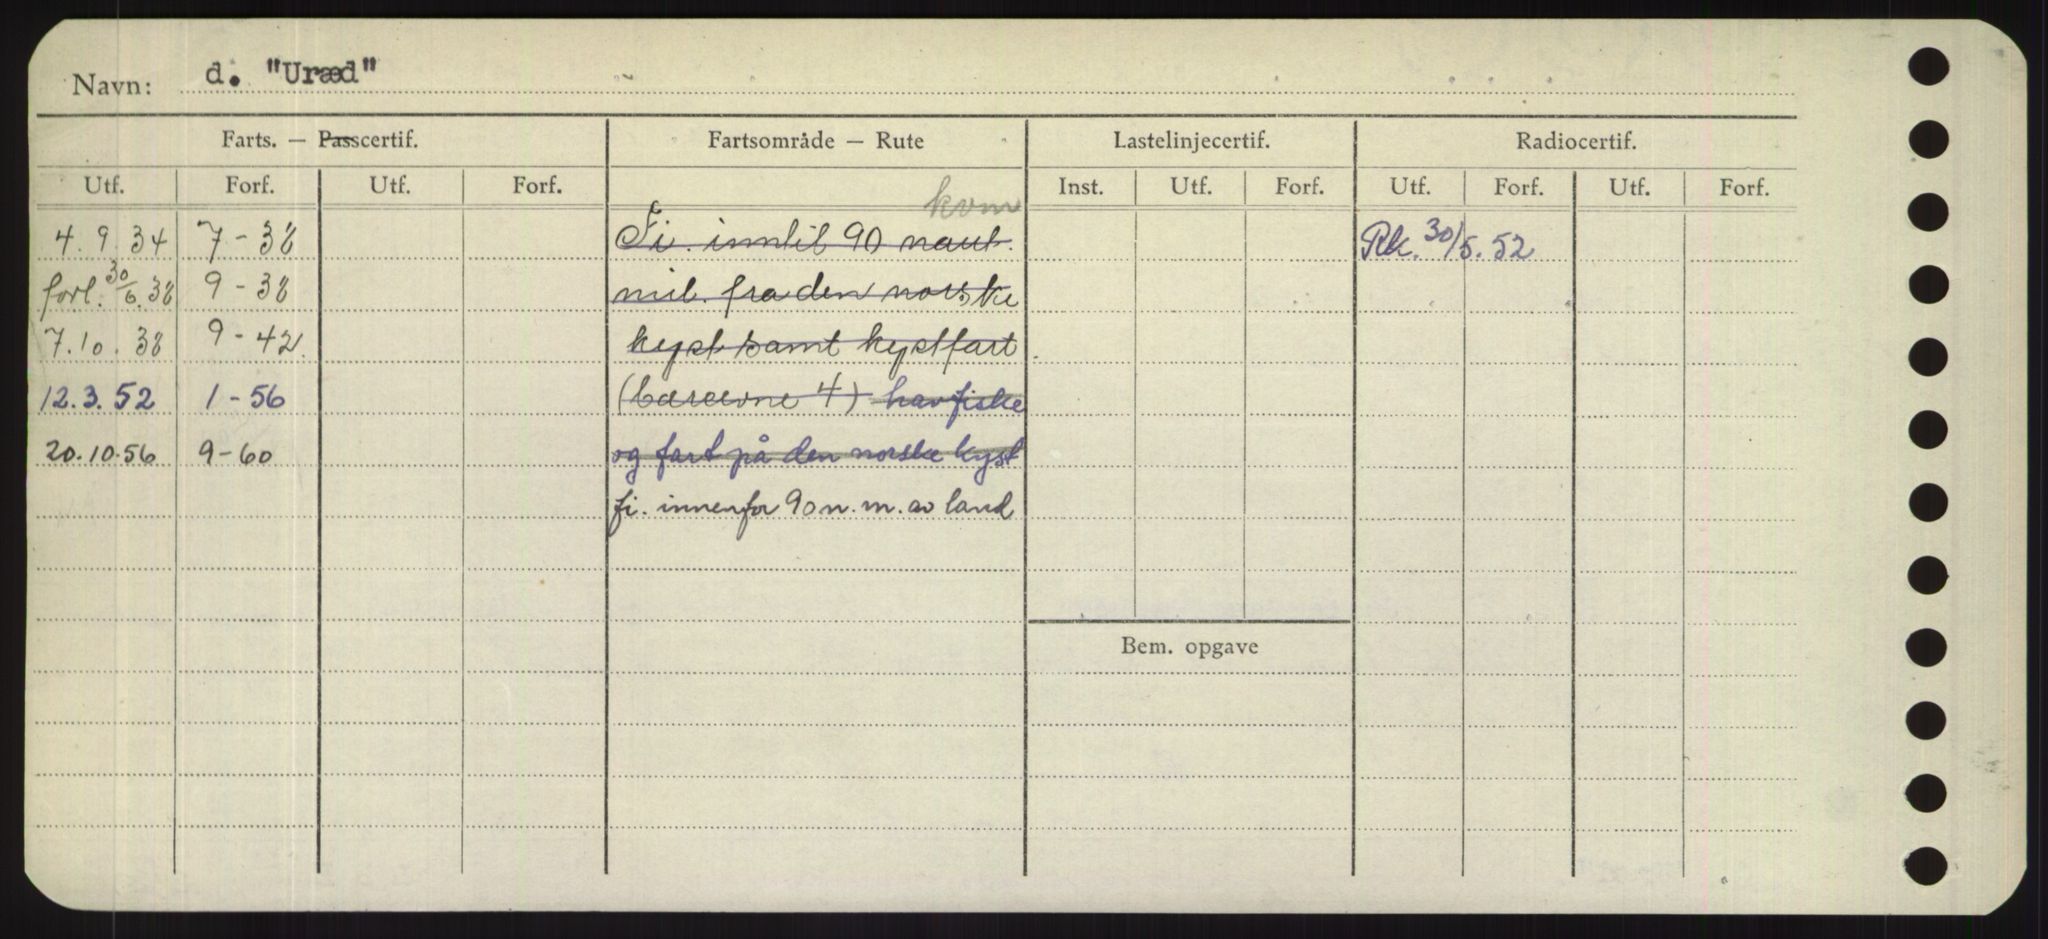 Navn: d. "Uræd"
Farts. — Passcertif. Fartsområde — Rute Lastelinjecertif. Radiocertif.
Utf. Forf. Utf. Forf. Inst. Utf. Forf. Utf. Forf. Utf. Forf.
4. 9. 34 7 - 38 Fi. inntil 90 naut. Rk. 30/5. 52
forl. 30/6. 38 9 - 38 mil. fra den norske
7. 10. 38 9 - 42 kyst samt kystfart
12. 3. 52 1 - 56 (bæreevne 4) havfiske
20. 10. 56 9 - 60 og fart på den norske kyst
fi. innenfor 90 n. m. av land
Bem. opgave